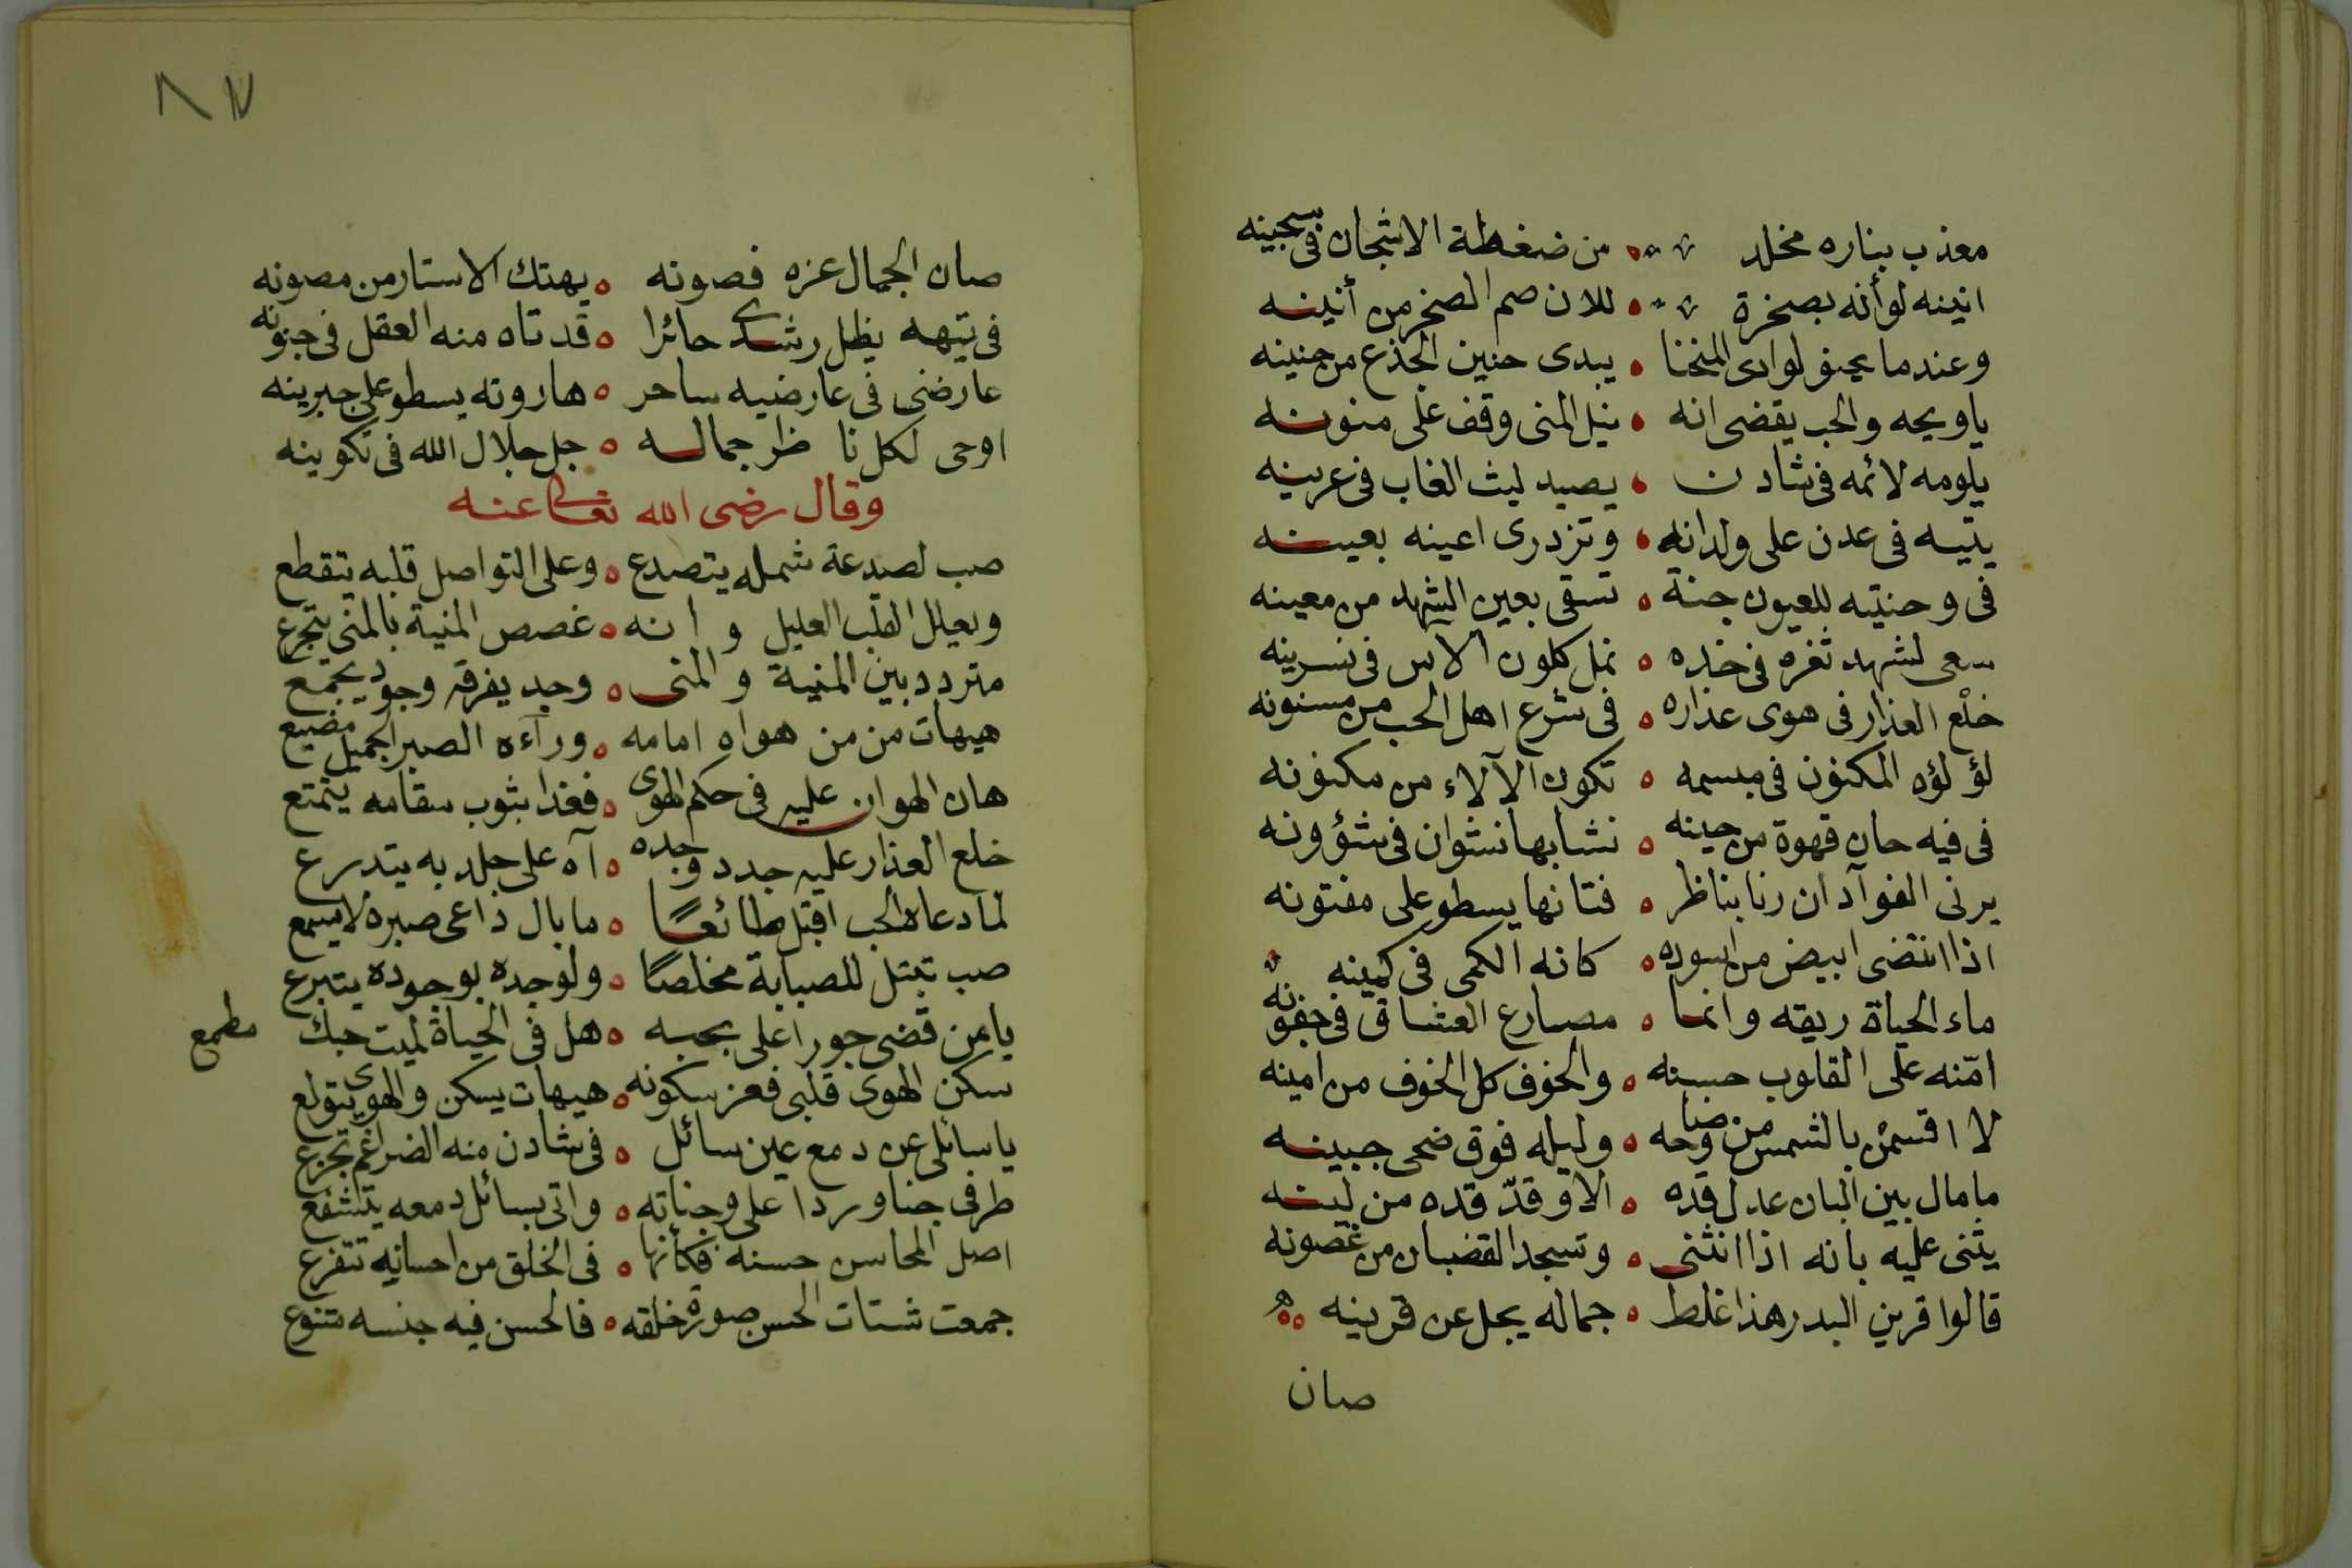 معذب بناره مخلد من ضغطة الاشجان فى سجينه
انينه لو أنه بصخرة للان صم الصخر من أنينه
وعندما يحنو لوادى المنحنا يبدى حنين الجذع من حنينه
ياويحه والحب يقضى انه نيل المنى وقف على منونه
يلومه لائمه فى شادن يصيد ليث الغاب فى عرينه
يتيه فى عدن على ولدانه وتزدرى اعينه بعينه
فى وجنتيه للعيون جنة تسقى بعين الشهد من معينه
سعى لشهد ثغره فى خده نمل كلون الاس فى نسرينه
خلْع العذار فى هوى عذاره فى شرع اهل الحب من مسنونه
لؤلؤه المكنون فى مبسمه تكون الآلاء من مكنونه
فى فيه حان قهوة من حينه نشا بها نشوان فى شؤونه
يرنى الفوآد ان رنا بناظر فتانها يسطو على مفتونه
اذا انتضى ابيض من اسوده كانه الكمى فى كمينه
ماء الحياة ريقه وانما مصارع العشاق فى جفونه
امّنه على القلوب حسنه والخوف كل الخوف من امينه
لا اقسمن بالشمس من وضاحه وليله فوق ضحى جبينه
مامال بين البان عدل قده الا وقدّ قده من لينه
يثنى عليه بانه اذا انثنى وتسجد القضبان من غصونه
قالوا قرين البدر هذا غلط جماله يجل عن قرينه
صان
٨٧
صان الجمال عزه فصونه يهتك الاستار من مصونه
فى تيهه يظل رشدى حائرا قد تاه منه العقل فى جنونه
عارضنى فى عارضيه ساحر هاروته يسطو على جبرينه
اوحى لكل ناظر جماله جل جلال الله فى تكوينه
وقال رضى الله تعالى عنه
صب لصدعة شمله يتصدع وعلى التواصل قلبه يتقطع
ويعلل القلب العليل وانه غصص المنية بالمنى يتجرع
متردد بين المنية والمنى وجد يفرقه وجود يجمع
هيهات من من هواه امامه ورآءه الصبر الجميل مضيع
هان الهوان عليه فى حكم الهوى فغدا بثوب سقامه يتمتع
خلع العذار عليه جدد وجده آه على جلد به يتدرع
لما دعاه الحب اقبل طائعًا مابال داعى صبره لا يسمع
صب تبتل للصبابة مخلصًا ولوجده بوجوده يتبرع
يامن قضى جورا على بحبه هل فى الحياة لميت حبك مطمع
سكن الهوى قلبى فعز سكونه هيهات يسكن والهوى يتولع
ياسائلى عن دمع عين سائل فى شادن منه الضراغم تجزع
طرفى جنا وردا على وجناته واتى بسائل دمعه يتشفع
اصل المحاسن حسنه فكأنها فى الخلق من احسانه تتفرع
جمعت شتات الحسن صورة خلقه فالحسن فيه جنسه متنوع